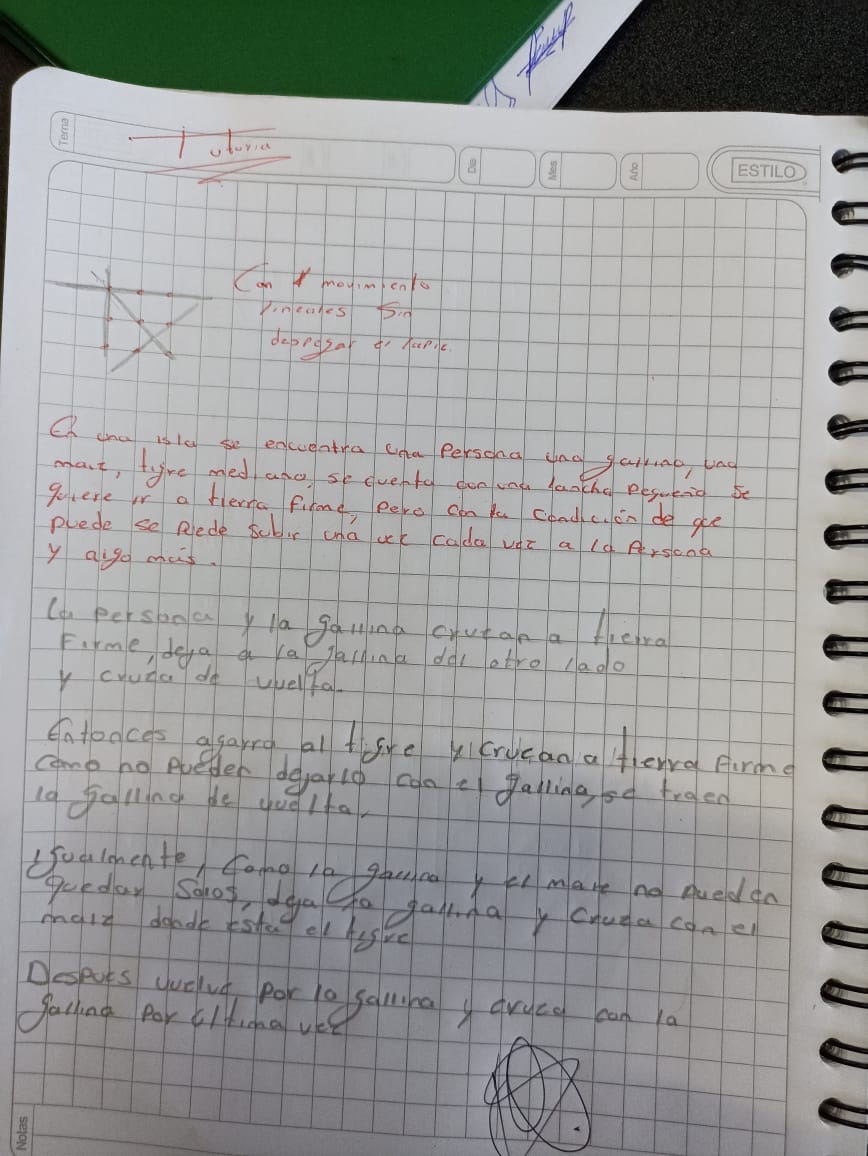 Tema
Tutoria
Dia
Mes
Año
ESTILO
Con movimiento
lineales Sin
despegar el lapiz.
En una isla se encuentra una Persona una gallina, una
maiz, tigre mediano, se cuenta con una lancha pequeña se
quiere ir a tierra firme, Pero con la Condición de que
puede se Puede Subir una vez cada vez a la Persona
y algo más.
La persona y la gallina cruzan a tierra
Firme, deja a la gallina del otro lado
y cruza de vuelta.
Entonces agarra al tigre y cruzan a tierra firme
como no pueden dejarlo con el gallina, se traen
la gallina de vuelta.
Igualmente, como la gallina y el maiz no pueden
quedar Solos, deja la gallina y Cruza con el
maiz donde esta el tigre
Despues vuelve por la gallina y cruza con la
gallina por última vez
Notas